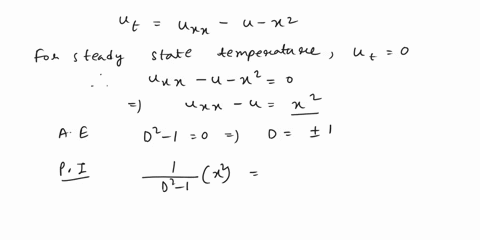 u_t = u_xx - u - x2
For steady state temperature, u_t = 0
∴ u_xx - u - x² = 0
=) u_xx - u = x²
A.E D²-1 = 0 =) D = ± 1
P.I 1/(D²-1) (x²) =